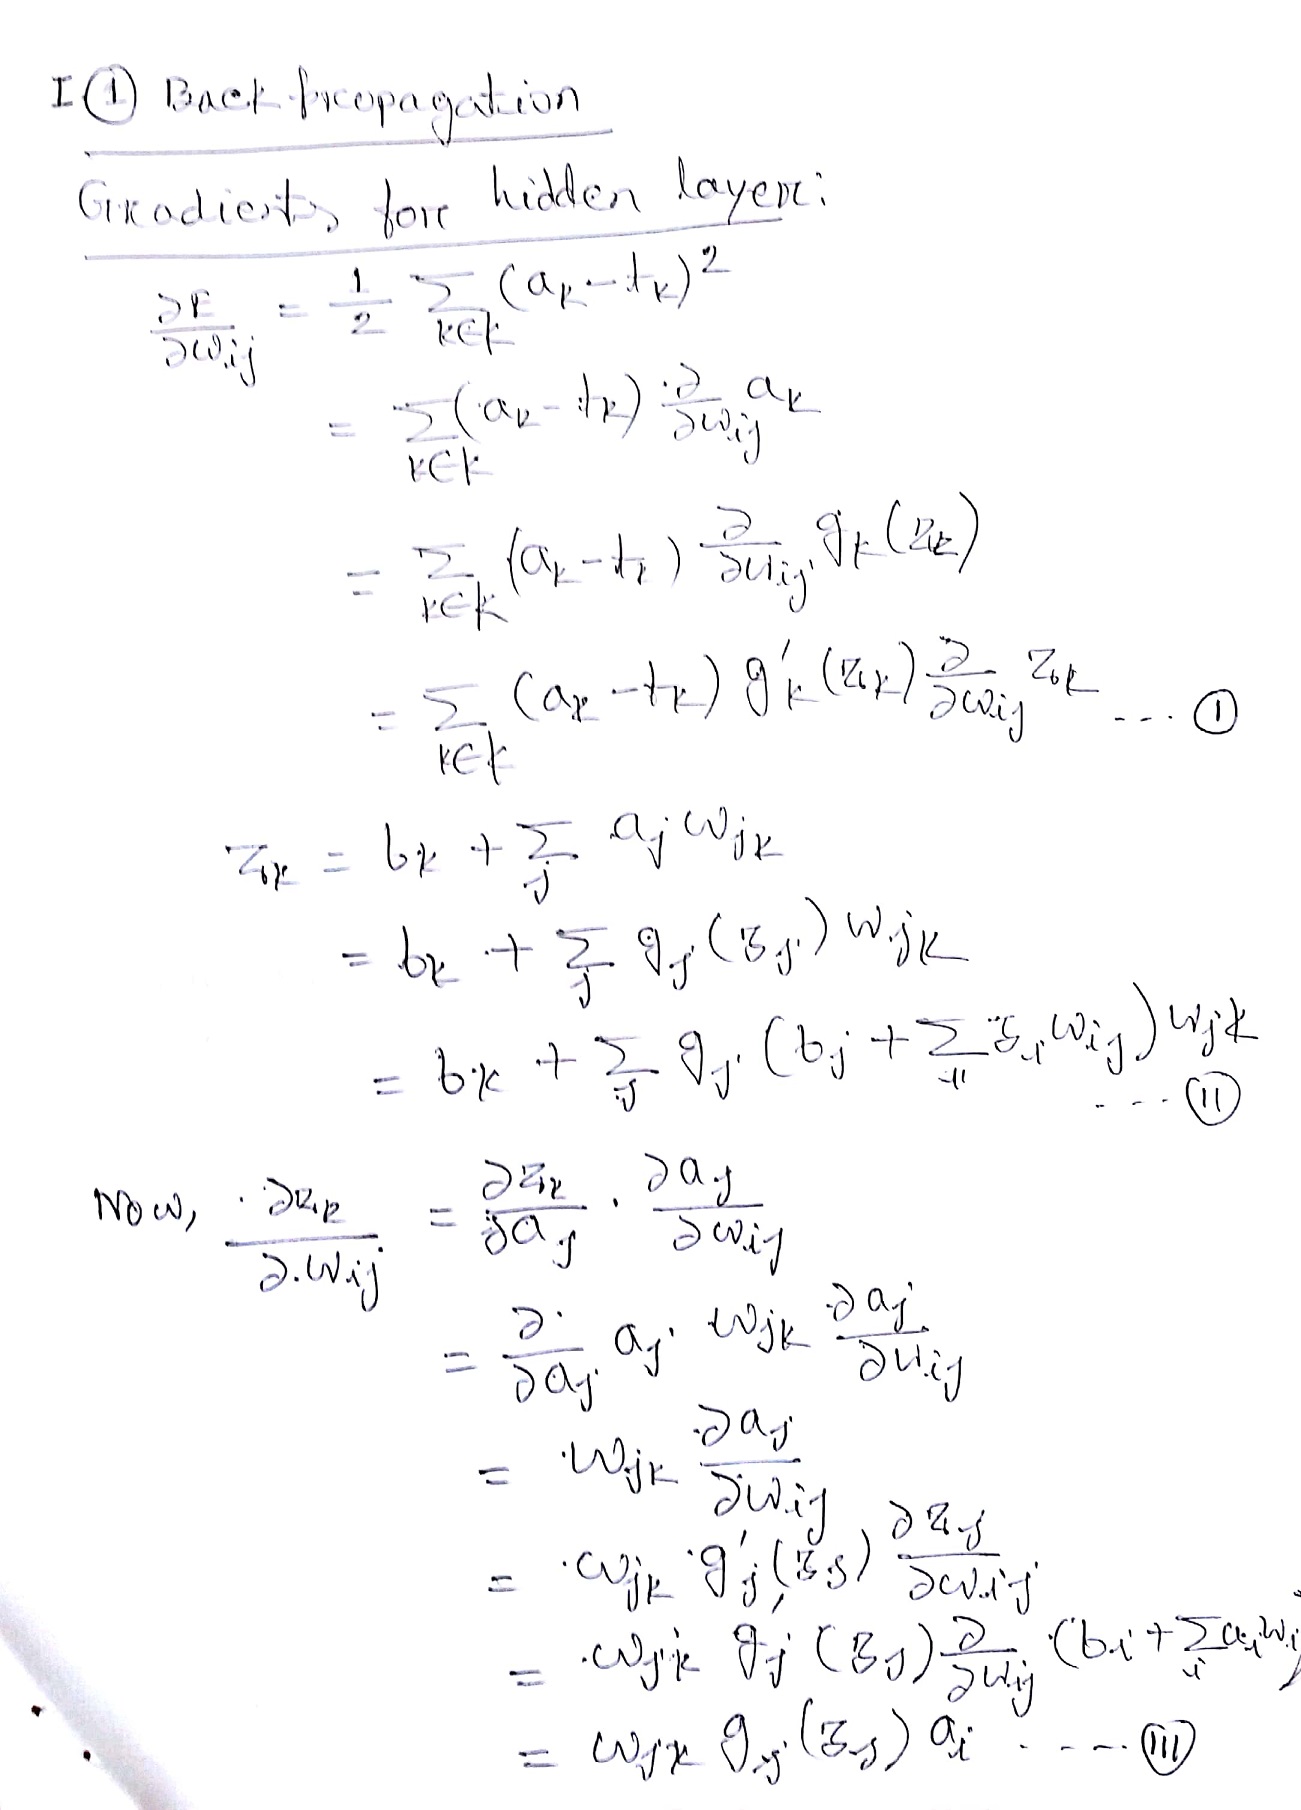 I ① Back propagation
Gradients for hidden layer:
∂E/∂w_ij = 1/2 Σ_{k∈K} (a_k - t_k)^2
= Σ_{k∈K} (a_k - t_k) ∂/∂w_ij a_k
= Σ_{k∈K} (a_k - t_k) ∂/∂w_ij g_k(z_k)
= Σ_{k∈K} (a_k - t_k) g'_k(z_k) ∂/∂w_ij z_k ... ①
z_k = b_k + Σ_j a_j w_jk
= b_k + Σ_j g_j(z_j) w_jk
= b_k + Σ_j g_j(b_j + Σ_i z_i w_ij) w_jk
... ⑪
Now, ∂z_k/∂w_ij = ∂z_k/∂a_j · ∂a_j/∂w_ij
= ∂/∂a_j a_j w_jk ∂a_j/∂w_ij
= w_jk ∂a_j/∂w_ij
= w_jk g'_j(z_j) ∂z_j/∂w_ij
= w_jk g'_j(z_j) ∂/∂w_ij (b_i + Σ_i a_i w_ij)
= w_jk g_j(z_j) a_i .... (III)